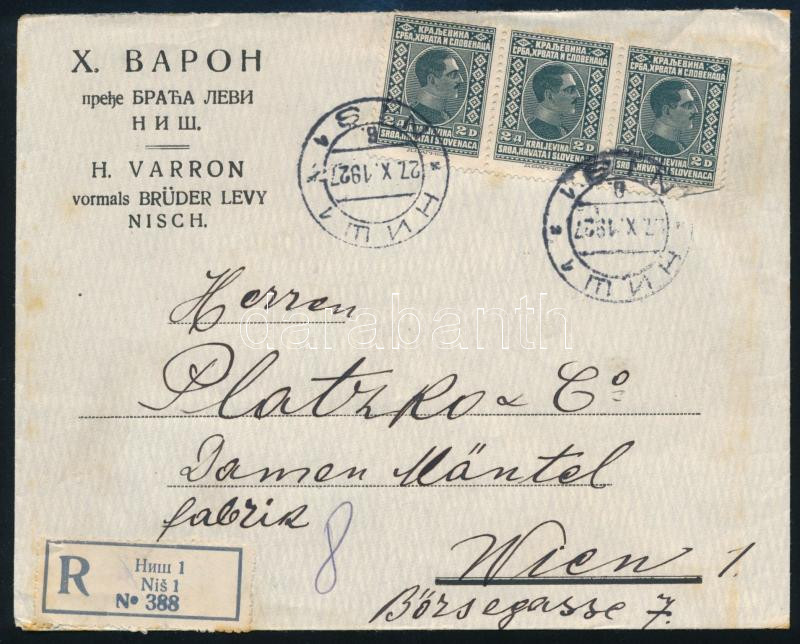 Х. ВАРОН
пређе БРАЋА ЛЕВИ
НИШ.
H. VARRON
vormals BRÜDER LEVY
NISCH.
КРАЉЕВИНА
СРБА, ХРВАТА И СЛОВЕНАЦА
2 Д 2 D
KRALJEVINA
SRBA, HRVATA I SLOVENACA
КРАЉЕВИНА
СРБА, ХРВАТА И СЛОВЕНАЦА
2 Д 2 D
KRALJEVINA
SRBA, HRVATA I SLOVENACA
КРАЉЕВИНА
СРБА, ХРВАТА И СЛОВЕНАЦА
2 Д 2 D
KRALJEVINA
SRBA, HRVATA I SLOVENACA
НИШ 1
27. X. 1927
НИШ 1
27. X. 1927
Herren
Platzko & Co
Damen Mäntel
fabrik
8
Wien 1.
Börsegasse 7.
R
Ниш 1
Niš 1
No 388
darabanth